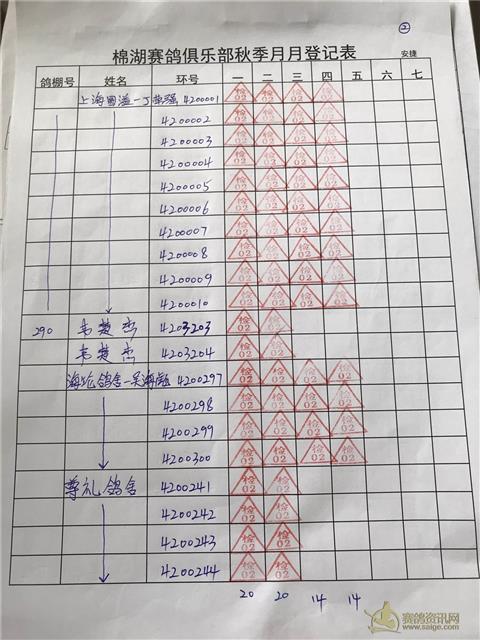 ②
棉湖赛鸽俱乐部秋季月月登记表 安捷
鸽棚号 姓名 环号 一 二 三 四 五 六 七
上海 4200001 检02 检02 检02 检02
4200002 检02 检02 检02 检02
4200003 检02 检02 检02 检02
4200004 检02 检02 检02 检02
4200005 检02 检02 检02 检02
4200006 检02 检02 检02 检02
4200007 检02 检02 检02 检02
4200008 检02 检02 检02 检02
4200009 检02 检02 检02 检02
4200010 检02 检02 检02 检02
290 韦楚杰 4203203 检02 检02
韦楚杰 4203204 检02 检02
鸽舍 4200297 检02 检02 检02 检02
4200298 检02 检02 检02 检02
4200299 检02 检02 检02 检02
4200300 检02 检02 检02 检02
尊礼鸽舍 4200241 检02 检02
4200242 检02 检02
4200243 检02 检02
4200244 检02 检02
20 20 14 14
赛鸽资讯网
www.saige.com